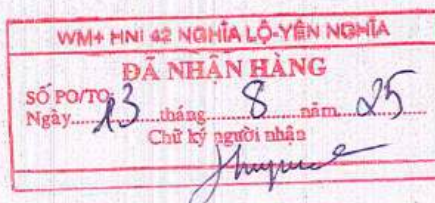 WM+ HNI 42 NGHĨA LỘ-YÊN NGHĨA
ĐÃ NHẬN HÀNG
SỐ PO/TO:
Ngày 13 tháng 8 năm 25
Chữ ký người nhận